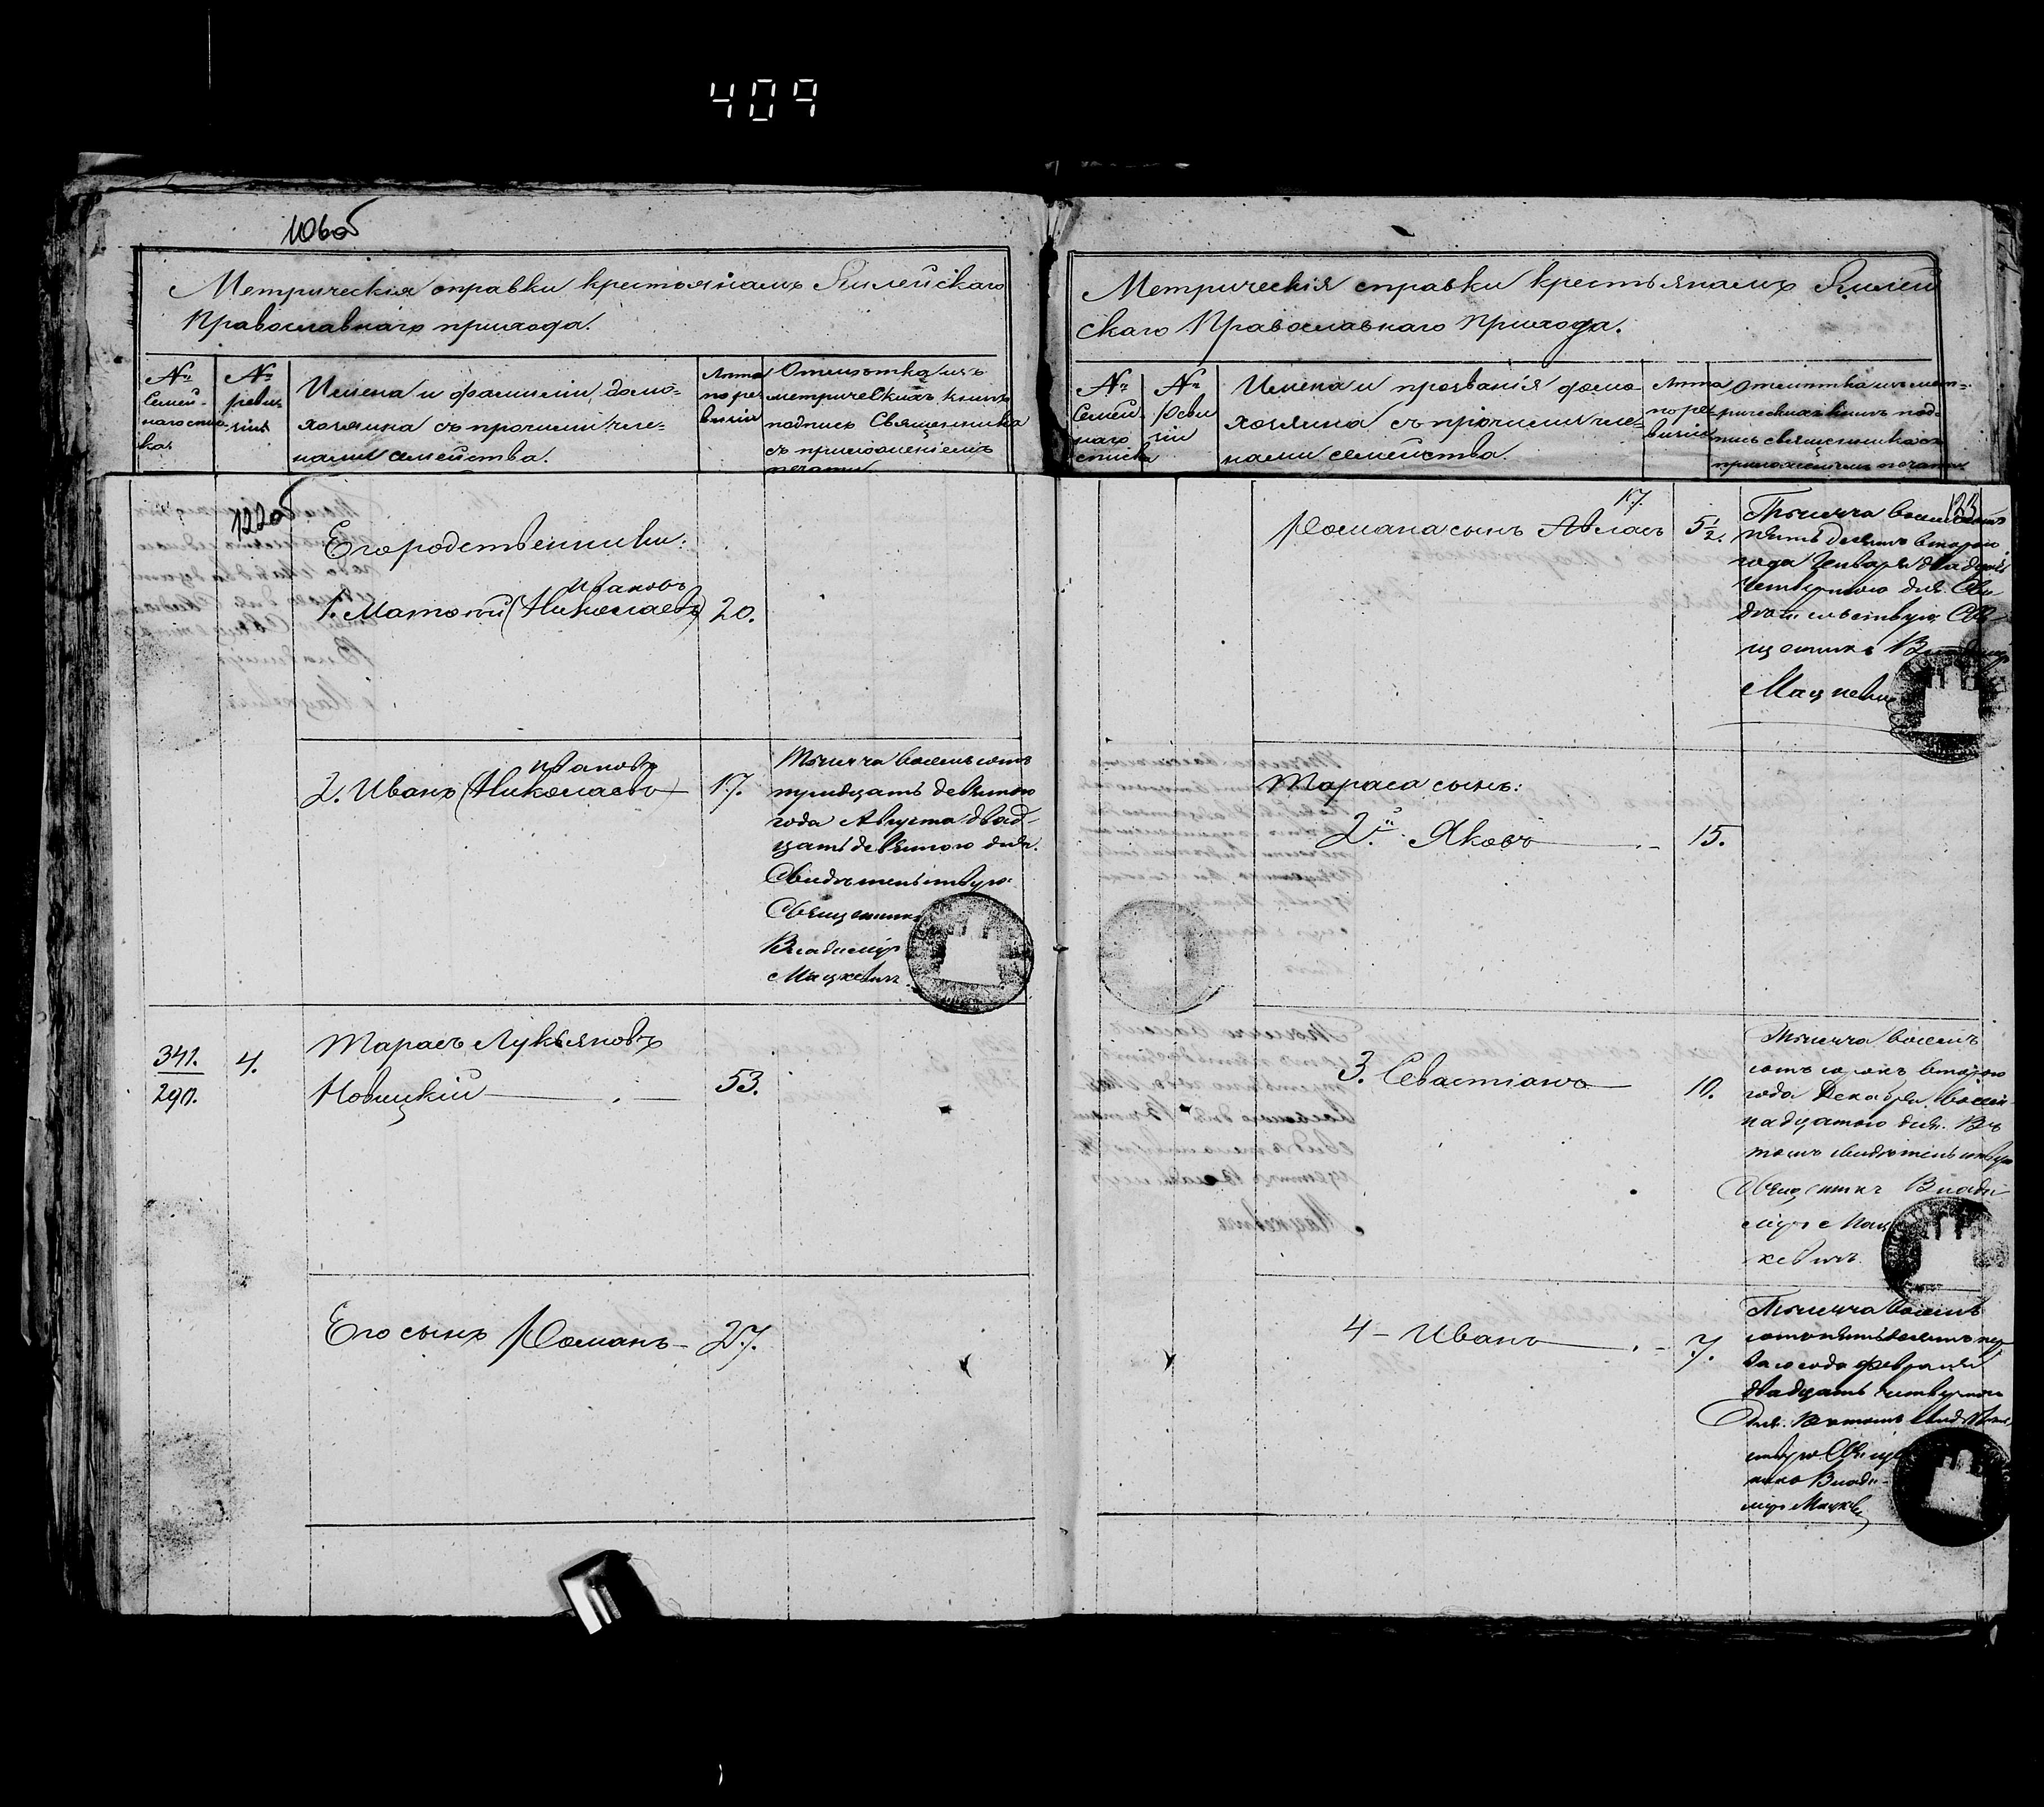 409
106об
Метрическія справки крестьянамъ Яилейскаго
Православнаго прихода.
№ Семей-наго списка.
№ ревизіи
Имена и фамиліи домо-
хозяина съ прочими чле-
нами семейства.
Лѣта по ревизіи
Отмѣтка изъ
метрическихъ книгъ
подпись Священника
съ приложеніемъ
печати
122об
Его родственники:
Ивановъ
1. Матѳей (Николаевъ) 20.
Ивановъ
2. Иванъ (Николаевъ 17.
Тысяча восемьсотъ
тридцать девятого
года Августа двад-
цать девятого дня.
Свидѣтельствую
Священникъ
Владиміръ
Мацкевичъ
341.
290.
4.
Тарасъ Лукьяновъ
Новицкій 53.
Его сынъ Романъ 27.
Метрическія справки крестьянамъ
скаго Православнаго Прихода.
№ Семей-наго списка
№ Реви-зіи
Имена и прозванія домо-
хозяина съ прочими чле-
нами семейства.
Лѣта по ревизіи
Отмѣтка изъ мет-
рическихъ книгъ под-
пись священника съ
приложеніемъ печати
123
17.
Романа сынъ Авласъ 5½.
Тысяча восемьсотъ
пятьдесятъ второго
года Генваря двадцать
четвертого дня. Сви-
дѣтельствую Свя-
щенникъ Владиміръ
Мацкевичъ
Тараса сынъ:
2й Яковъ 15.
3. Севастіанъ 10.
Тысяча восемь
сотъ сорокъ второго
года Декабря восем-
надцатого дня. Въ
томъ свидѣтельствую
Священникъ Влади-
міръ Мац-
кевичъ.
4 - Иванъ 7.
Тысяча восемь
сотъ пятьдесятъ пер-
ваго года февраля
двадцать четвертого
дня. Въ томъ свидѣтель-
ствую Священ-
никъ Влади-
міръ Мацкевичъ